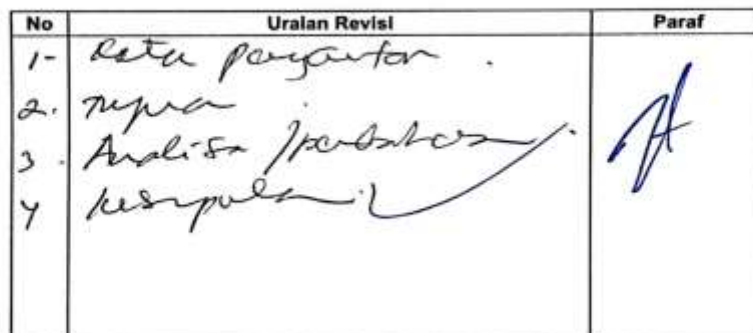 No Uraian Revisi Paraf
1- Kata pengantar.
2. Tujuan
3. Analisa / pembahasan.
4 kesimpulan